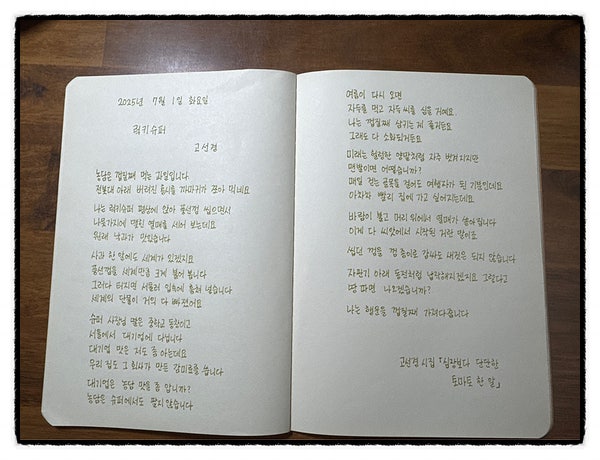 2025년 7월 1일 화요일
럭키슈퍼
고선경
농담은 껍질째 먹는 과일입니다
전봇대 아래 버려진 홍시를 까마귀가 쪼아 먹네요
나는 럭키슈퍼 평상에 앉아 풍선껌 씹으면서
나뭇가지에 맺힌 열매를 세어 보는데요
원래 낙과가 맛있습니다
사과 한 알에도 세계가 있겠지요
풍선껌을 세계만큼 크게 불어 봅니다
그러다 터지면 서둘러 입속에 훔쳐 넣습니다
세계의 단물이 거의 다 빠졌어요
슈퍼 사장님 딸은 중학교 동창이고
서울에서 대기업에 다닙니다
대기업 맛은 저도 좀 아는데요
우리 집도 그 회사가 만든 감미료를 씁니다
대기업은 농담 맛을 좀 압니까?
농담은 슈퍼에서도 팔지 않습니다
여름이 다시 오면
자두를 먹고 자두 씨를 심을 거예요
나는 껍질째 삼키는 게 즐거운데요
그래도 다 소화되거든요
미래는 헐렁한 양말처럼 자주 벗겨지지만
맨발이면 어떻습니까?
매일 걷는 골목을 걸어도 여행자가 된 기분인데요
아차차 빨리 집에 가고 싶어지는데요
바람이 불고 머리 위에서 열매가 쏟아집니다
이게 다 씨앗에서 시작된 거란 말이죠
씹던 껌을 껌 종이로 감싸도 새것은 되지 않습니다
자판기 아래 동전처럼 납작해지겠지요 그렇다고
땅 파면 나오겠습니까?
나는 행운을 껍질째 가져다줍니다
고선경 시집 「심장보다 단단한
토마토 한 알」